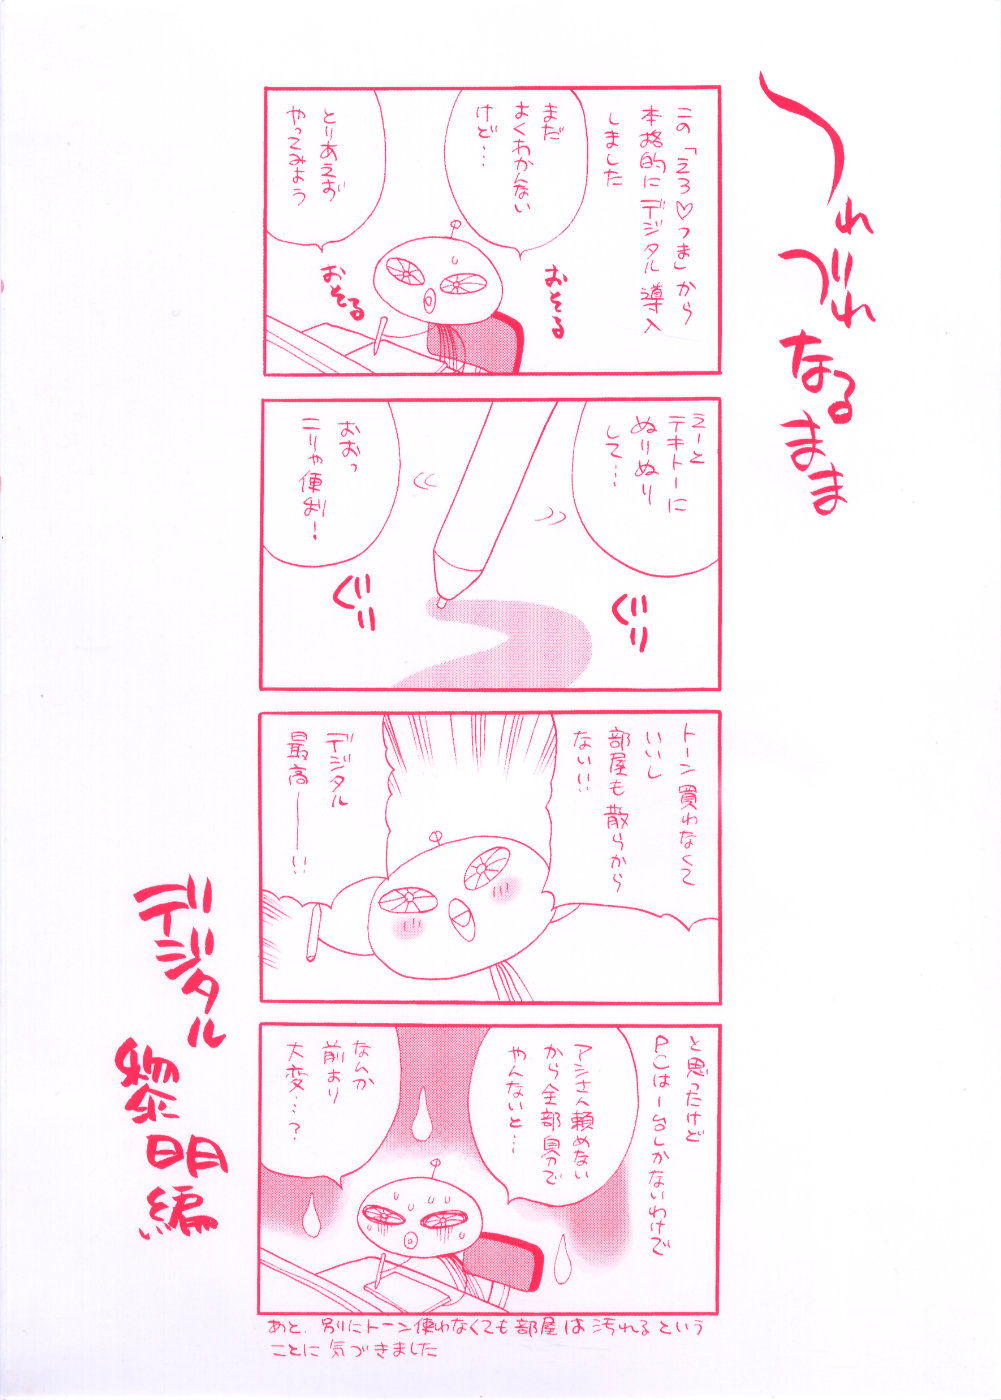 つれづれ
なるまま
この「えろ♡つま」から
本格的にデジタル導入
しました
まだ
よくわかんない
けど…
とりあえず
やってみよう
おそる
おそる
えーと
テキトーに
ぬりぬり
して…
おおっ
こりゃ便利!
ぐりり
ぐりり
トーン買わなくて
いいし
部屋も散らから
ないい…
デジタル
最高──い
と思ったけど
PCは1台しかないわけで
アシさん頼めない
から全部自分で
やんないと…
なんか
前より
大変…?
あと、別にトーン使わなくても部屋は汚れるという
ことに気づきました
デジタル
黎明編